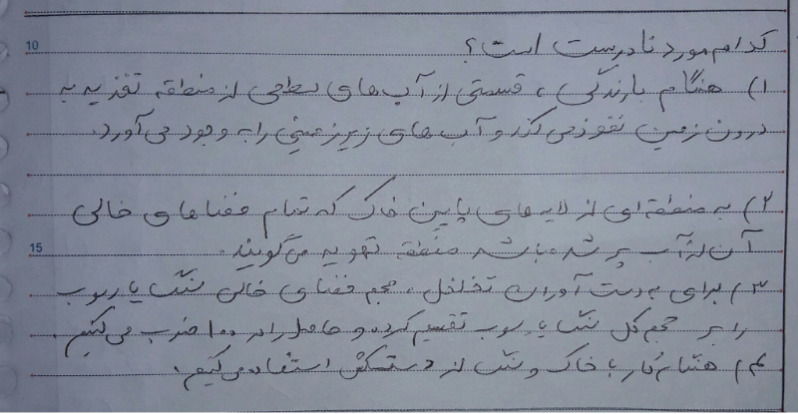 10
کدام مورد نادرست است؟
۱) هنگام بارندگی، قسمتی از آب‌های سطحی از منطقه تغذیه به
درون زمین نفوذ می‌کند و آب‌های زیرزمینی را به وجود می‌آورد.
۲) به منطقه‌ای از لایه‌های پایین خاک که تمام فضاهای خالی
15 آن از آب پر شده باشد منطقه تهویه می‌گویند.
۳) برای بدست آوردن تخلخل، حجم فضای خالی سنگ یا رسوب
را بر حجم کل سنگ یا رسوب تقسیم کرده و حاصل را در ۱۰۰ ضرب می‌کنیم.
۴) هنگام کار با خاک و سنگ از دستکش استفاده می‌کنیم.